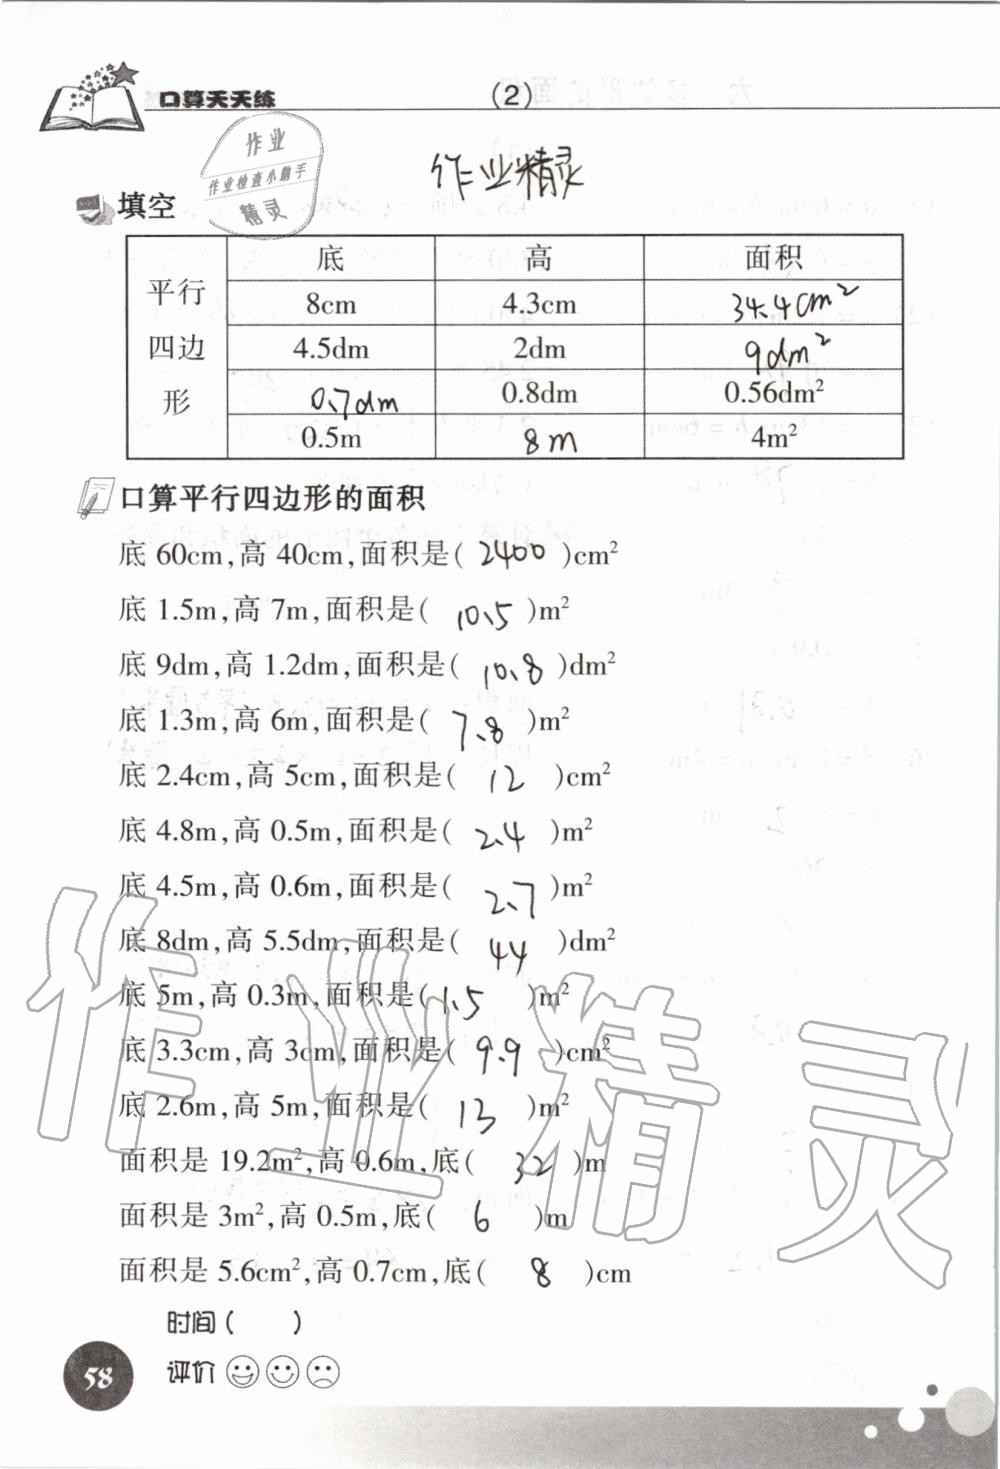 口算天天练
(2)
作业
作业检查小助手
精灵
作业精灵
填空
平行四边形
底 高 面积
8cm 4.3cm 34.4cm²
4.5dm 2dm 9dm²
0.7dm 0.8dm 0.56dm²
0.5m 8m 4m²
口算平行四边形的面积
底 60cm,高 40cm,面积是( 2400 )cm²
底 1.5m,高 7m,面积是( 10.5 )m²
底 9dm,高 1.2dm,面积是( 10.8 )dm²
底 1.3m,高 6m,面积是( 7.8 )m²
底 2.4cm,高 5cm,面积是( 12 )cm²
底 4.8m,高 0.5m,面积是( 2.4 )m²
底 4.5m,高 0.6m,面积是( 2.7 )m²
底 8dm,高 5.5dm,面积是( 44 )dm²
底 5m,高 0.3m,面积是( 1.5 )m²
底 3.3cm,高 3cm,面积是( 9.9 )cm²
底 2.6m,高 5m,面积是( 13 )m²
面积是 19.2m²,高 0.6m,底( 32 )m
面积是 3m²,高 0.5m,底( 6 )m
面积是 5.6cm²,高 0.7cm,底( 8 )cm
时间( )
评价
58
作业精灵